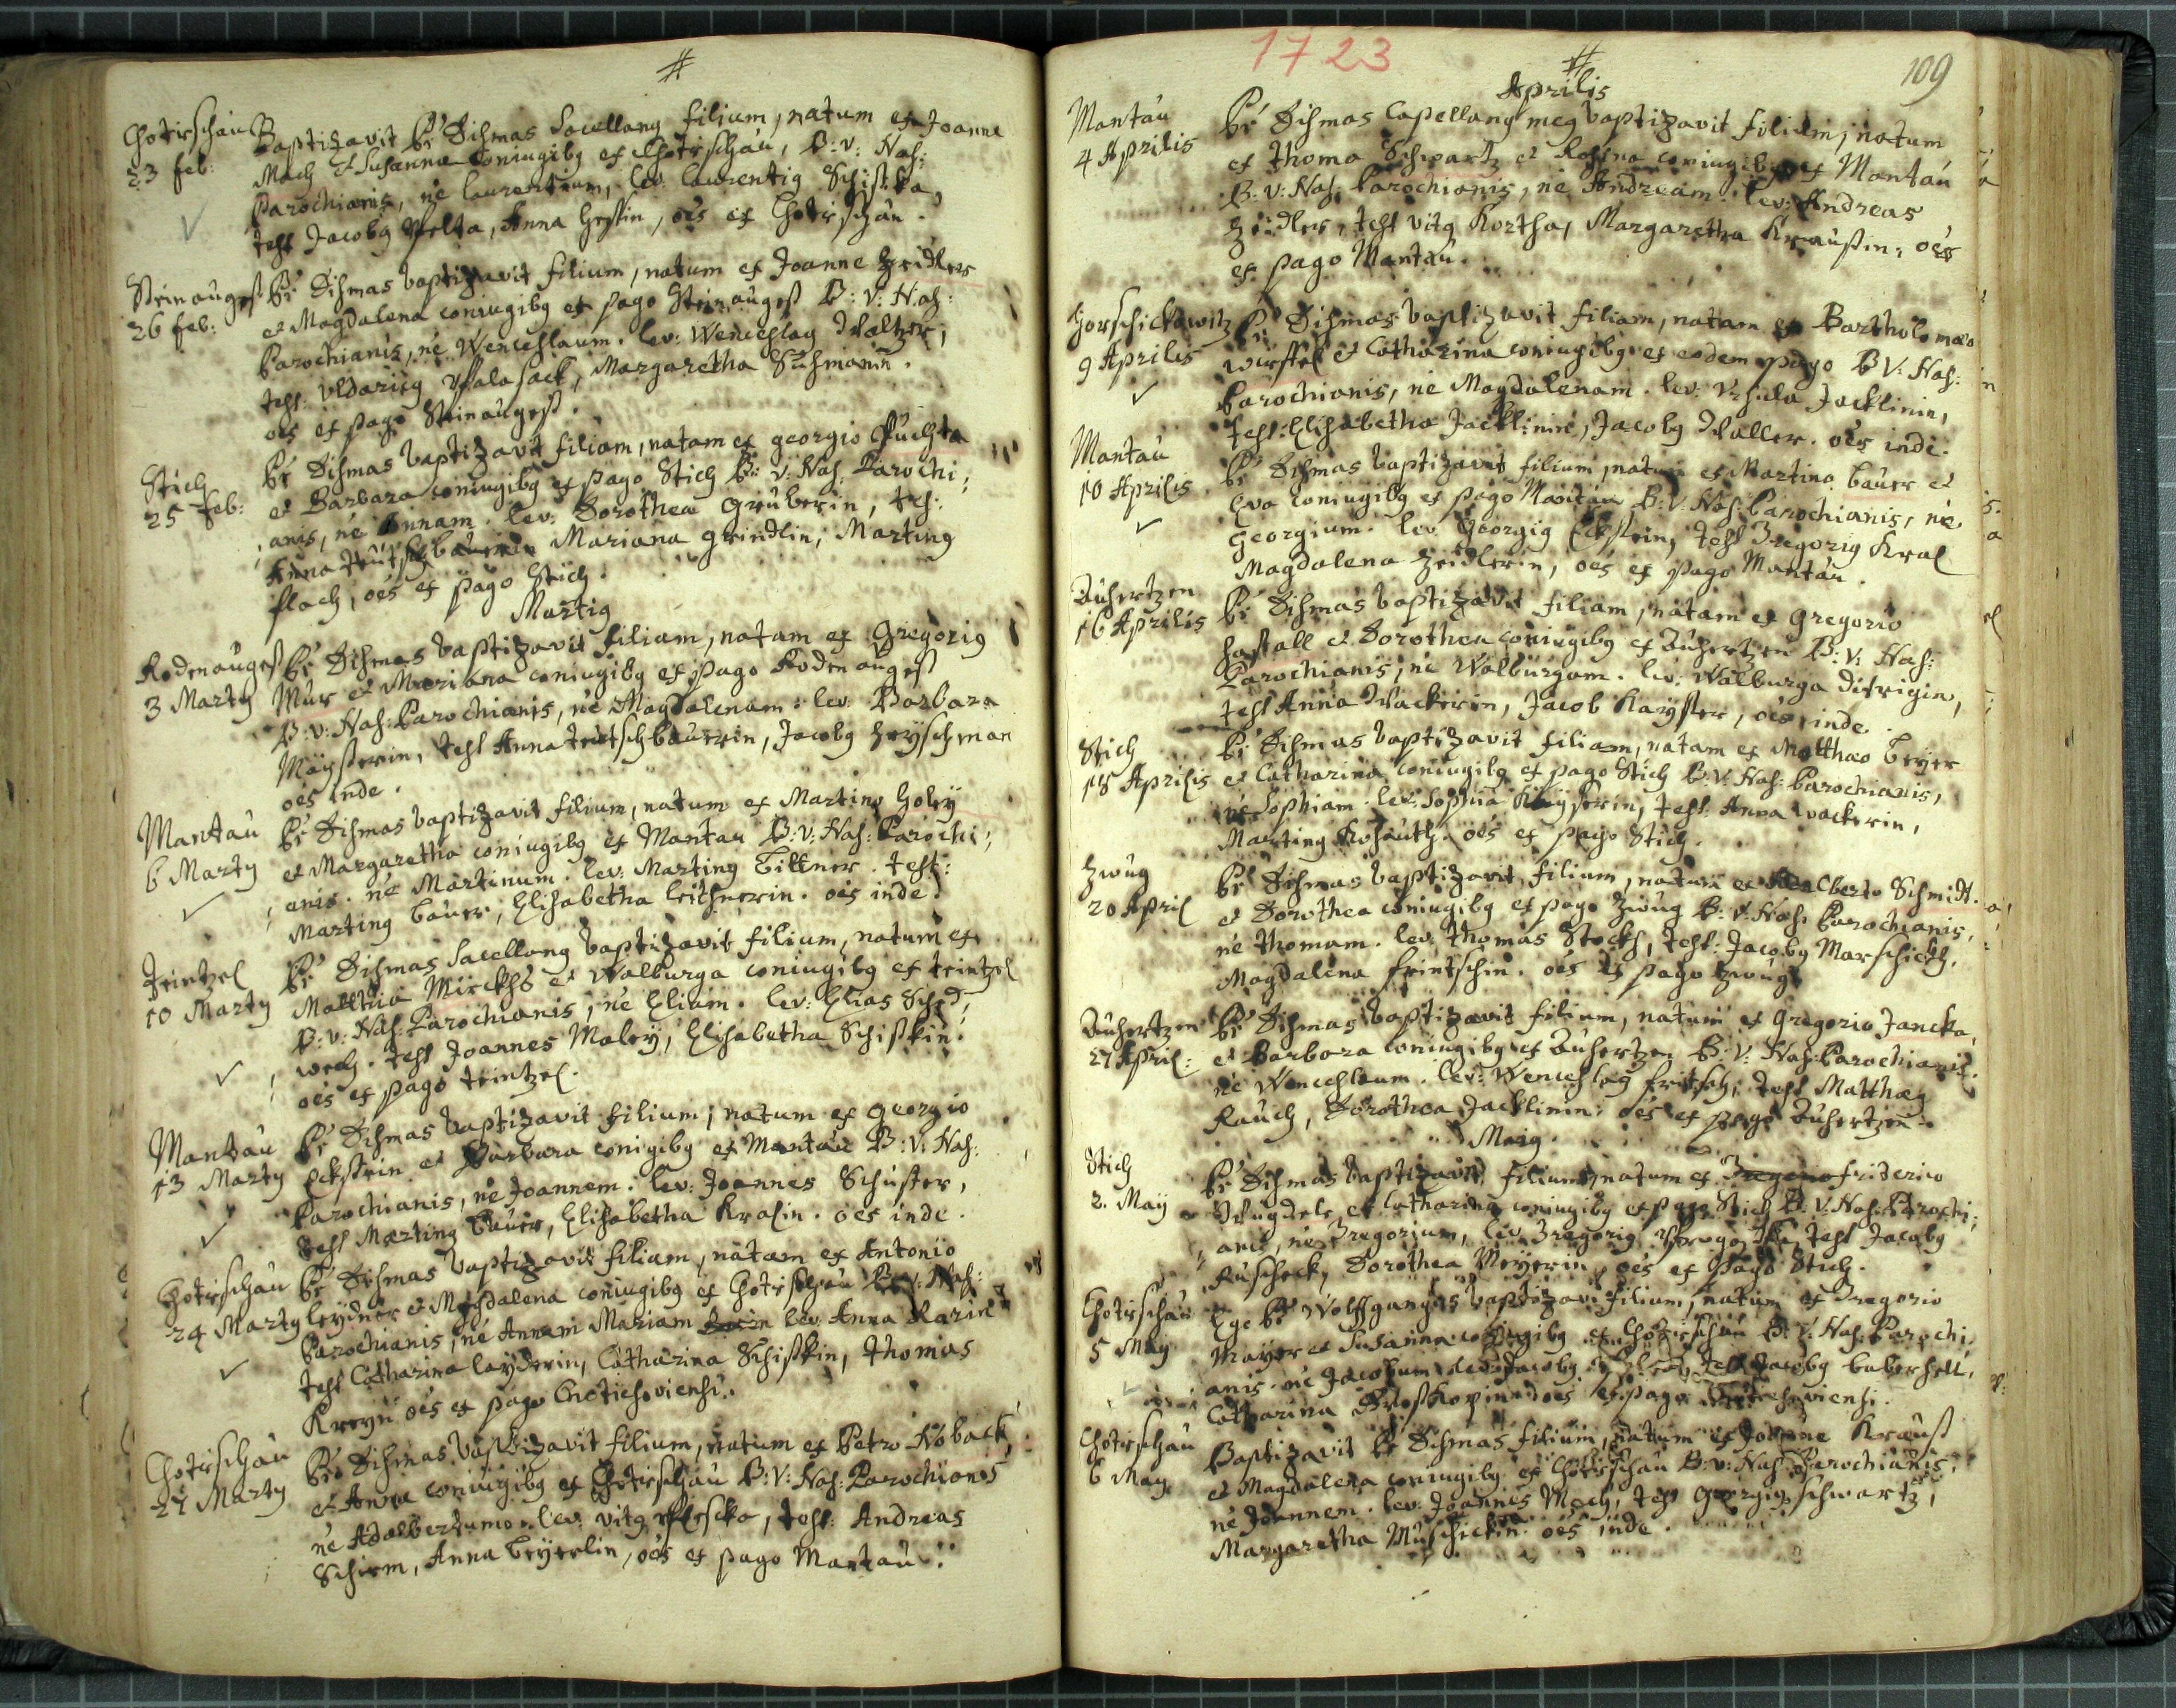 Chotieschau Baptizavit Pr Dismas Sacellang filium, natum ex Joanne
23 feb: Mach et Susanna coniugibg ex Chotieschau, B: V: Nas:
Parochianis, ne laurentium, lev: laurentig Schiska,
test Jacobg Anna oes ex Chotieschau.
Steinaugest Pr Dismas baptizavit filium, natum ex Joanne Zeidler
26 feb: et Magdalena coniugibg ex pago Steinaugest B: V: Nas:
Parochianis, ne Wenceslaum. lev: Wenceslag
test: Margaretha
oes ex pago Steinaugest.
Stich Pr Dismas baptizavit filiam, natam ex georgio Puchta
25 feb: et Barbara coniugibg ex pago Stich B: V: Nas: Parochi;
anis, ne Annam. lev: Dorothea Gruberin, tes:
Anna Mariana greindlin, Marting
flach, oes ex pago Stich.
Martig
Rodenaugest Pr Dismas baptizavit filiam, natam ex Gregorig
3 Marty Mur et Mariana coniugibg ex pago Rodenaugest
B: V: Nas: Parochianis, ne Magdalenam: lev: Barbara
Mayserin, test Anna teutschbauerin, Jacobg
oes inde.
Mantau Pr Dismas baptizavit filium, natum ex Martino Holey
6 Marty et Margaretha coniugibg ex Mantau B: V: Nas: Parochi;
anis. ne Martinum. lev: Marting Bittner. test:
Marting bauer, Elisabetha leithnerin. oes inde.
teintzel Pr Dismas Sacellang baptizavit filium, natum ex
10 Marty Matthia et Walburga coniugibg ex teintzel
B: V: Nas: Parochianis, ne Eliam. lev: Elias Sched;
wech. test Joannes Maley, Elisabetha Schiskin.
oes ex pago teintzel.
Mantau Pr Dismas baptizavit filium, natum ex georgio
13 Marty Eckstein et Barbara conigibg ex Mantau B: V: Nas:
Parochianis, ne Joannem. lev: Joannes Schuster,
test Marting bauer, Elisabetha Kralin. oes inde.
Chotieschau Pr Dismas baptizavit filiam, natam ex Antonio
24 Marty leydner et Magdalena coniugibg ex Chotieschau B: V: Nas:
Parochianis, ne Annam Mariam lev: Anna
test Catharina layderin, Catharina Schiskin, thomas
oes ex pago Chotieschoviensi.
Chotieschau Pr Dismas baptizavit filium, natum ex Petro Koback,
27 Marty et Anna coniugibg ex Chotieschau B: V: Nas: Parochianis
ne Adalbertum. lev: vitg test: Andreas
Schirm, Anna beyerlin, oes ex pago Mantau.
1723
109
Aprilis
Mantau Pr Dismas Capellang meg baptizavit filium, natum
4 Aprilis ex thoma Schwartz et Rosina coniugibg ex Mantau
B: V: Nas: Parochianis, ne Andream. lev: Andreas
Zeidler, test vitg Kortha, Margaretha Kraussin, oes
ex pago Mantau.
Horschickowitz Pr Dismas baptizavit filiam, natam ex Bartholomaeo
9 Aprilis Wirffel et Catharina coniugibg ex eodem pago B V: Nas:
Parochianis, ne Magdalenam. lev: Ursula Jacklinin,
test: Elisabetha Jacklinin, Jacobg Waller. oes inde.
Mantau Pr Dismas baptizavit filium, natum ex Martino bauer et
10 Aprilis Eva coniugibg ex pago Mantau B: V: Nas: Parochianis, ne
Georgium. lev Georgig Eckstein, test Gregorig Kral
Magdalena Zeidlerin, oes ex pago Mantau.
Auhertzen Pr Dismas baptizavit filiam, natam ex Gregorio
16 Aprilis Haskall et Dorothea coniugibg ex Auhertzen B: V: Nas:
Parochianis, ne Walburgam. lev: Walburga
test Anna Wackerin, Jacob Kayser, oes inde.
Stich Pr Dismas baptizavit filiam, natam ex Matthaeo beyer
18 Aprilis et Catharina coniugibg ex pago Stich B: V: Nas: Parochianis,
ne Sophiam. lev: Sophia Kayserin, test. Anna Wackerin,
Marting Kohauth. oes ex pago Stich.
Zwug Pr Dismas baptizavit filium, natum ex Adalberto Schmidt.
20 April et Dorothea coniugibg ex pago Zwug B: V: Nas: Parochianis,
ne thomam. lev: thomas Stocks, test: Jacobg Marschickh,
Magdalena frintschin. oes ex pago Zwug
Auhertzen Pr Dismas baptizavit filium, natum ex Gregorio Jancka,
27 April: et Barbara coniugibg ex Auhertzen B: V: Nas: Parochianis.
ne Wenceslaum. lev: Wenceslag fritsch, test Matthaeg
Rauch, Dorothea Jacklinin. oes ex pago Auhertzen.
Maig.
Stich Pr Dismas baptizavit filium, natum ex friderico
2. May et Catharina coniugibg ex pago Stich B: V: Nas: Parochi;
anis, ne Gregorium, lev: Gregorig test Jacobg
Ruscheck, Dorothea Meyerin, oes ex pago Stich.
Chotieschau Ego Pr Wolffgangus baptizavi filium, natum ex Gregorio
5 May Mayer et Susanna coniugibg ex Chotieschau B: V: Nas: Parochi
anis. ne Jacobum. lev: Jacobg test Jacobg
Catharina oes ex pago Chotieschoviensi.
Chotieschau Baptizavit Pr Dismas filium, natum ex Joanne Krauss
6 May et Magdalena coniugibg ex Chotieschau B: V: Nas Parochianis,
ne Joannem. lev: Joannes Mach, test Georgig schwartz,
Margaretha Muschickin oes inde.